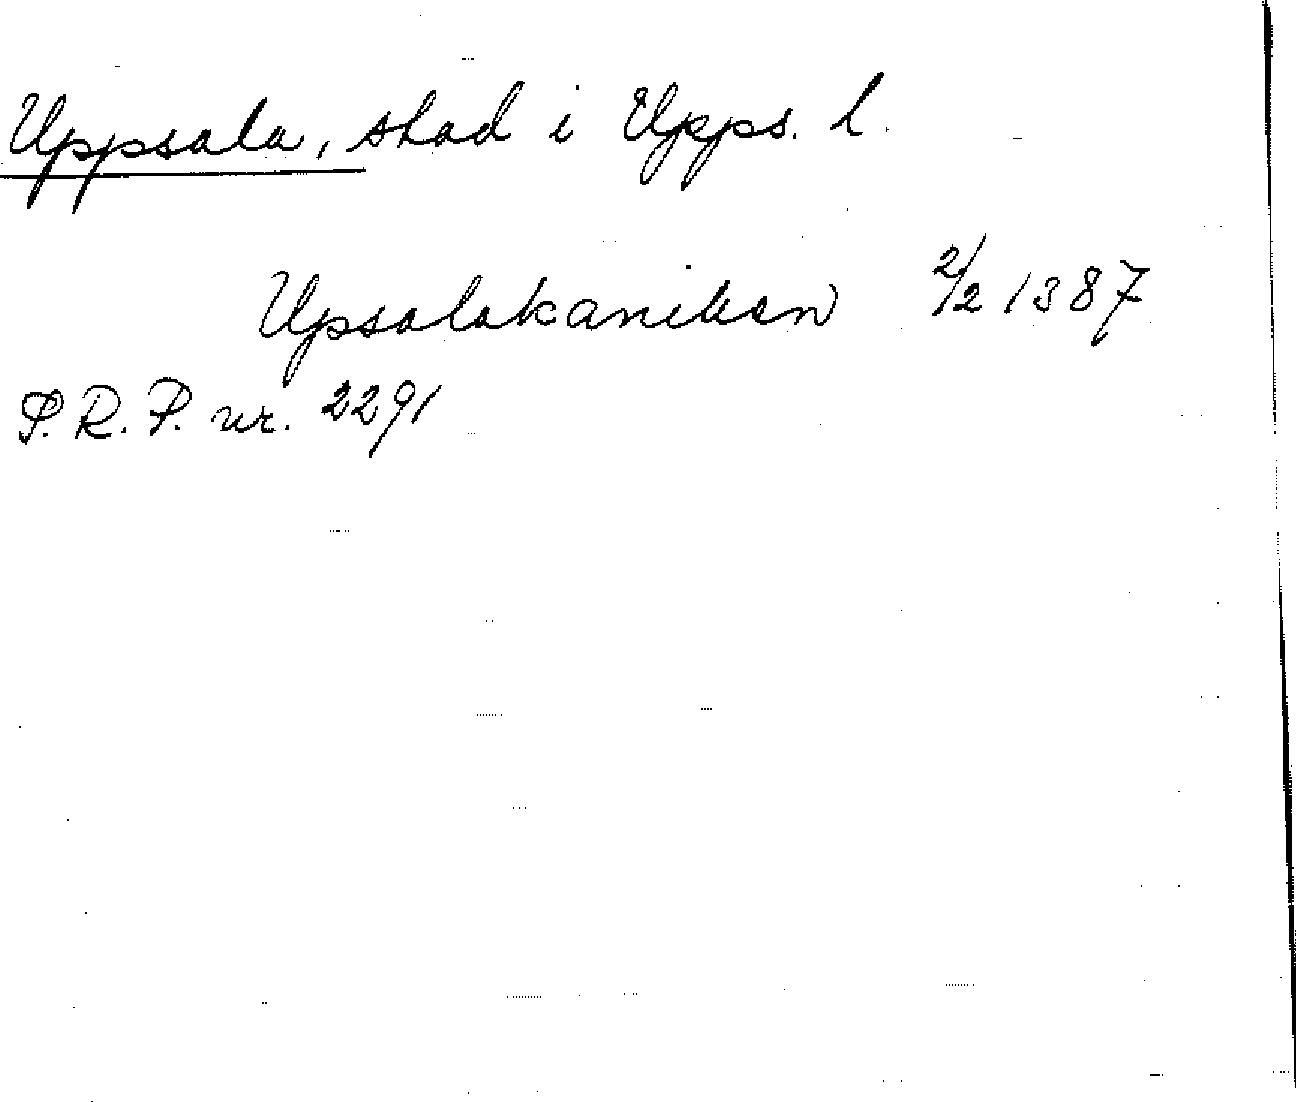 Uppsala, stad i Upps. l.
Upsalakaniken 2/2 1387
S.R.P. nr. 2291